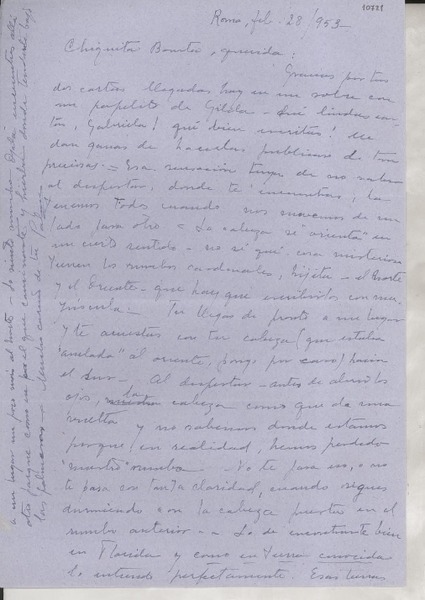 10721
Roma, feb. 28/953
Chiquita Bonita, querida:
Gracias por tus
dos cartas llegadas hoy en un sobre con
un papelito de Gilda. Qué lindas car-
tas, Gabriela! qué bien escritas! Me
dan ganas de hacerlas publicar de tan
preciosas. Esa sensación tuya de no saber
al despertar, donde te encuentras, la
tenemos todos cuando nos movemos de un
lado para otro. La cabeza se orienta en
un cierto sentido - no sé qué cosa misteriosa
tienen los rumbos cardinales, hijita - el Norte
y el Oriente - que hay que escribirlos con ma-
yúscula. Tu llegas de pronto a un lugar
y te acuestas con tu cabeza (que estaba
"anclada" al oriente, pongo por caso) hacia
el sur. Al despertar - antes de abrir los
ojos, la cabeza como que da una
vuelta y no sabemos donde estamos
porque, en realidad, hemos perdido
"nuestro" rumbo. No te pasa eso, o no
te pasa con tanta claridad, cuando sigues
durmiendo con la cabeza puesta en el
rumbo anterior. Lo de encontrarte bien
en Florida y como en tierra conocida
lo entiendo perfectamente. Esas tierras
a un lugar un poco más al norte - Lo siento mucho